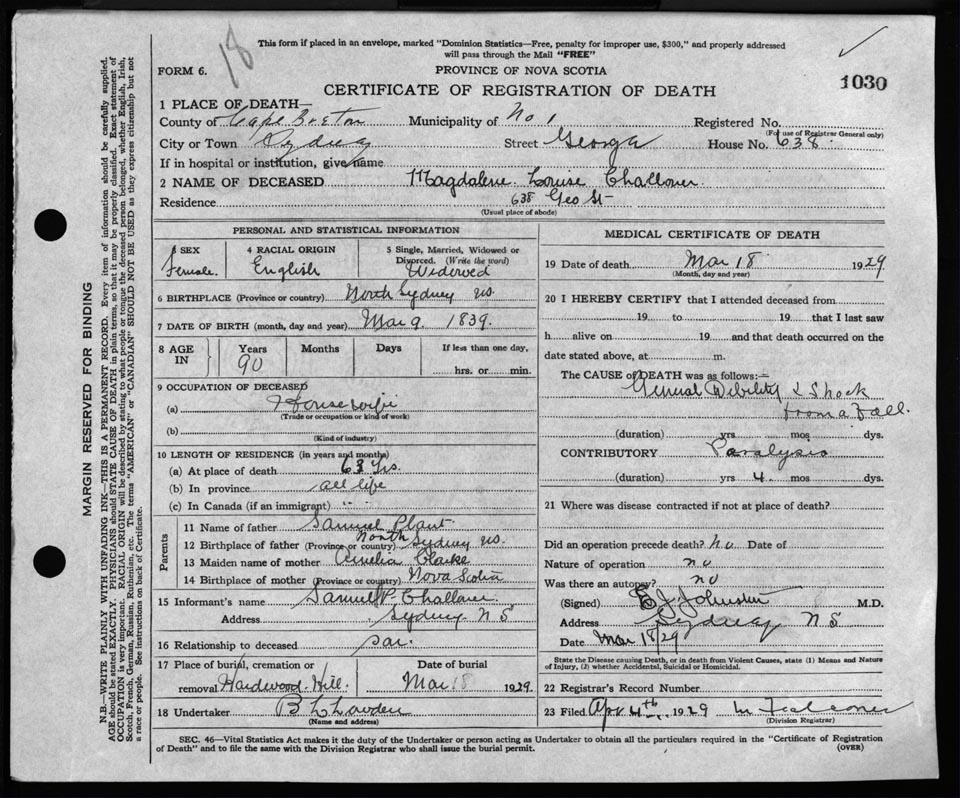 18
This form if placed in an envelope, marked "Dominion Statistics—Free, penalty for improper use, $300," and properly addressed
will pass through the Mail "FREE"
FORM 6.
PROVINCE OF NOVA SCOTIA
CERTIFICATE OF REGISTRATION OF DEATH
1030
1 PLACE OF DEATH—
County of Cape Breton Municipality of No 1 Registered No.
(For use of Registrar General only)
City or Town Sydney Street George House No. 638
If in hospital or institution, give name
2 NAME OF DECEASED Magdalene Louise Challoner
Residence 638 Geo St
(Usual place of abode)
PERSONAL AND STATISTICAL INFORMATION
SEX Female
4 RACIAL ORIGIN English
5 Single, Married, Widowed or Divorced. (Write the word) Widowed
6 BIRTHPLACE (Province or country) North Sydney NS
7 DATE OF BIRTH (month, day and year) Mar 9. 1839.
8 AGE IN Years 90 Months Days If less than one day, hrs. or min.
9 OCCUPATION OF DECEASED
(a) Housewife
(Trade or occupation or kind of work)
(b)
(Kind of industry)
10 LENGTH OF RESIDENCE (in years and months)
(a) At place of death 63 Yrs.
(b) In province all life
(c) In Canada (if an immigrant)
Parents
11 Name of father Samuel Plant
12 Birthplace of father (Province or country) North Sydney NS
13 Maiden name of mother Amelia Clarke
14 Birthplace of mother (Province or country) Nova Scotia
15 Informant's name Samuel P. Challoner
Address Sydney N S
16 Relationship to deceased son
17 Place of burial, cremation or removal Hardwood Hill
Date of burial Mar 18 1929.
18 Undertaker
(Name and address)
MEDICAL CERTIFICATE OF DEATH
19 Date of death Mar 18 1929
(Month, day and year)
20 I HEREBY CERTIFY that I attended deceased from
19 to 19 that I last saw
h alive on 19 and that death occurred on the
date stated above, at m.
The CAUSE of DEATH was as follows:—
General Debility & Shock
from a Fall.
(duration) yrs mos dys.
CONTRIBUTORY Paralysis
(duration) yrs 4 mos dys
21 Where was disease contracted if not at place of death?
Did an operation precede death? No Date of
Nature of operation no
Was there an autopsy? no
(Signed) Johnston M.D.
Address Sydney N S
Date Mar 18/29
State the Disease causing Death, or in death from Violent Causes, state (1) Means and Nature
of Injury, (2) whether Accidental, Suicidal or Homicidal.
22 Registrar's Record Number
23 Filed Apr 4th 1929
(Division Registrar)
SEC. 46—Vital Statistics Act makes it the duty of the Undertaker or person acting as Undertaker to obtain all the particulars required in the "Certificate of Registration
of Death" and to file the same with the Division Registrar who shall issue the burial permit.
(OVER)
MARGIN RESERVED FOR BINDING
N.B.—WRITE PLAINLY WITH UNFADING INK—THIS IS A PERMANENT RECORD. Every item of information should be carefully supplied.
AGE should be stated EXACTLY. PHYSICIANS should STATE CAUSE OF DEATH in plain terms, so that it may be properly classified. Exact statement of
OCCUPATION is very important. RACIAL ORIGIN will be described by stating to what people or tongue the deceased person belonged, whether English, Irish,
Scotch, French, German, Russian, Ruthenian, etc. The terms "AMERICAN" or "CANADIAN" SHOULD NOT BE USED as they express citizenship but not
a race or people. See instructions on back of Certificate.